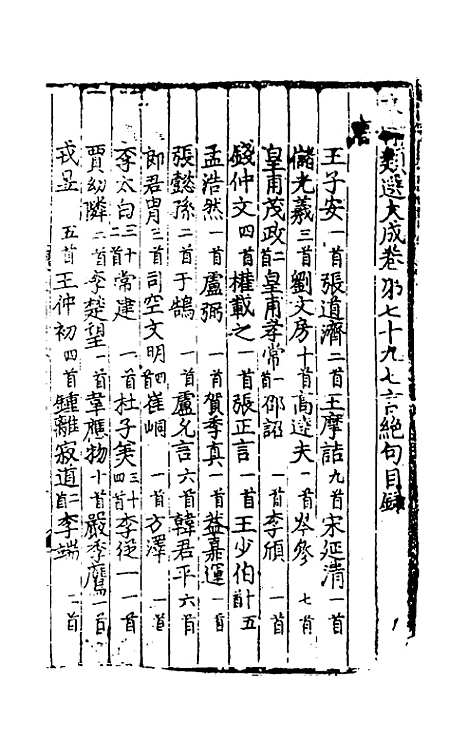 類選大成卷第七十九七言絕句目錄
唐
王子安 一首 張道濟 二首 王摩詰 九首 宋延清 一首
儲光羲 三首 劉文房 十首 高達夫 一首 岑參 七首
皇甫茂政 二首 皇甫孝常 一首 邵詔 一首 李頎 一首
錢仲文 四首 權載之 一首 張正言 一首 王少伯 十五首
孟浩然 一首 盧弼 一首 賀季真 一首 益嘉運 一首
張懿孫 二首 于鵠 一首 盧允言 六首 韓君平 六首
郎君冑 三首 司空文明 四首 崔峒 一首 方澤 一首
李太白 三十二首 常建 一首 杜子美 三十四首 李從一 一首
賈幼隣 二首 李楚望 一首 韋應物 十首 嚴季鷹 一首
戎昱 五首 王仲初 四首 鍾離寂道 二首 李端 一首